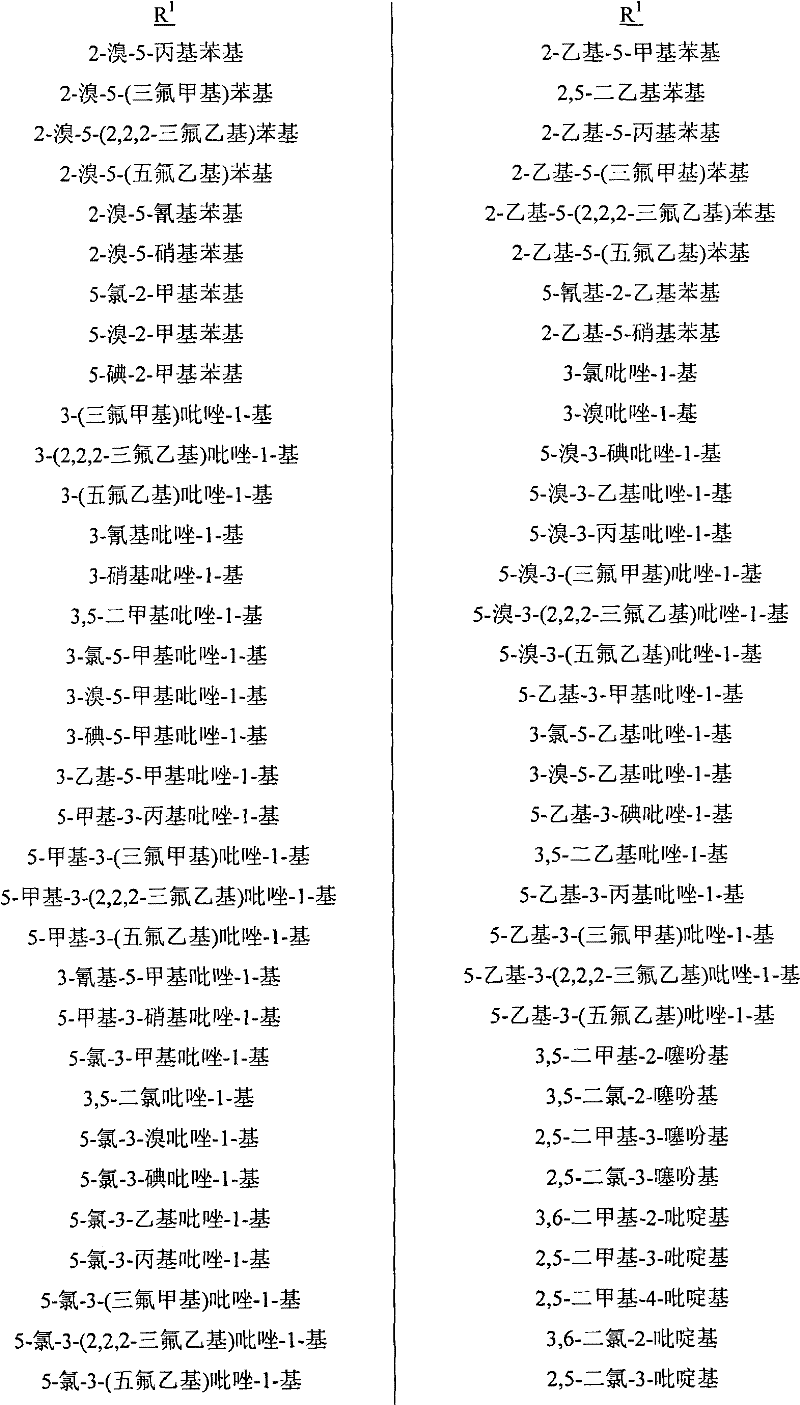 R¹
2-溴-5-丙基苯基
2-溴-5-(三氟甲基)苯基
2-溴-5-(2,2,2-三氟乙基)苯基
2-溴-5-(五氟乙基)苯基
2-溴-5-氰基苯基
2-溴-5-硝基苯基
5-氯-2-甲基苯基
5-溴-2-甲基苯基
5-碘-2-甲基苯基
3-(三氟甲基)吡唑-1-基
3-(2,2,2-三氟乙基)吡唑-1-基
3-(五氟乙基)吡唑-1-基
3-氰基吡唑-1-基
3-硝基吡唑-1-基
3,5-二甲基吡唑-1-基
3-氯-5-甲基吡唑-1-基
3-溴-5-甲基吡唑-1-基
3-碘-5-甲基吡唑-1-基
3-乙基-5-甲基吡唑-1-基
5-甲基-3-丙基吡唑-1-基
5-甲基-3-(三氟甲基)吡唑-1-基
5-甲基-3-(2,2,2-三氟乙基)吡唑-1-基
5-甲基-3-(五氟乙基)吡唑-1-基
3-氰基-5-甲基吡唑-1-基
5-甲基-3-硝基吡唑-1-基
5-氯-3-甲基吡唑-1-基
3,5-二氯吡唑-1-基
5-氯-3-溴吡唑-1-基
5-氯-3-碘吡唑-1-基
5-氯-3-乙基吡唑-1-基
5-氯-3-丙基吡唑-1-基
5-氯-3-(三氟甲基)吡唑-1-基
5-氯-3-(2,2,2-三氟乙基)吡唑-1-基
5-氯-3-(五氟乙基)吡唑-1-基
R¹
2-乙基-5-甲基苯基
2,5-二乙基苯基
2-乙基-5-丙基苯基
2-乙基-5-(三氟甲基)苯基
2-乙基-5-(2,2,2-三氟乙基)苯基
2-乙基-5-(五氟乙基)苯基
5-氰基-2-乙基苯基
2-乙基-5-硝基苯基
3-氯吡唑-1-基
3-溴吡唑-1-基
5-溴-3-碘吡唑-1-基
5-溴-3-乙基吡唑-1-基
5-溴-3-丙基吡唑-1-基
5-溴-3-(三氟甲基)吡唑-1-基
5-溴-3-(2,2,2-三氟乙基)吡唑-1-基
5-溴-3-(五氟乙基)吡唑-1-基
5-乙基-3-甲基吡唑-1-基
3-氯-5-乙基吡唑-1-基
3-溴-5-乙基吡唑-1-基
5-乙基-3-碘吡唑-1-基
3,5-二乙基吡唑-1-基
5-乙基-3-丙基吡唑-1-基
5-乙基-3-(三氟甲基)吡唑-1-基
5-乙基-3-(2,2,2-三氟乙基)吡唑-1-基
5-乙基-3-(五氟乙基)吡唑-1-基
3,5-二甲基-2-噻吩基
3,5-二氯-2-噻吩基
2,5-二甲基-3-噻吩基
2,5-二氯-3-噻吩基
3,6-二甲基-2-吡啶基
2,5-二甲基-3-吡啶基
2,5-二甲基-4-吡啶基
3,6-二氯-2-吡啶基
2,5-二氯-3-吡啶基